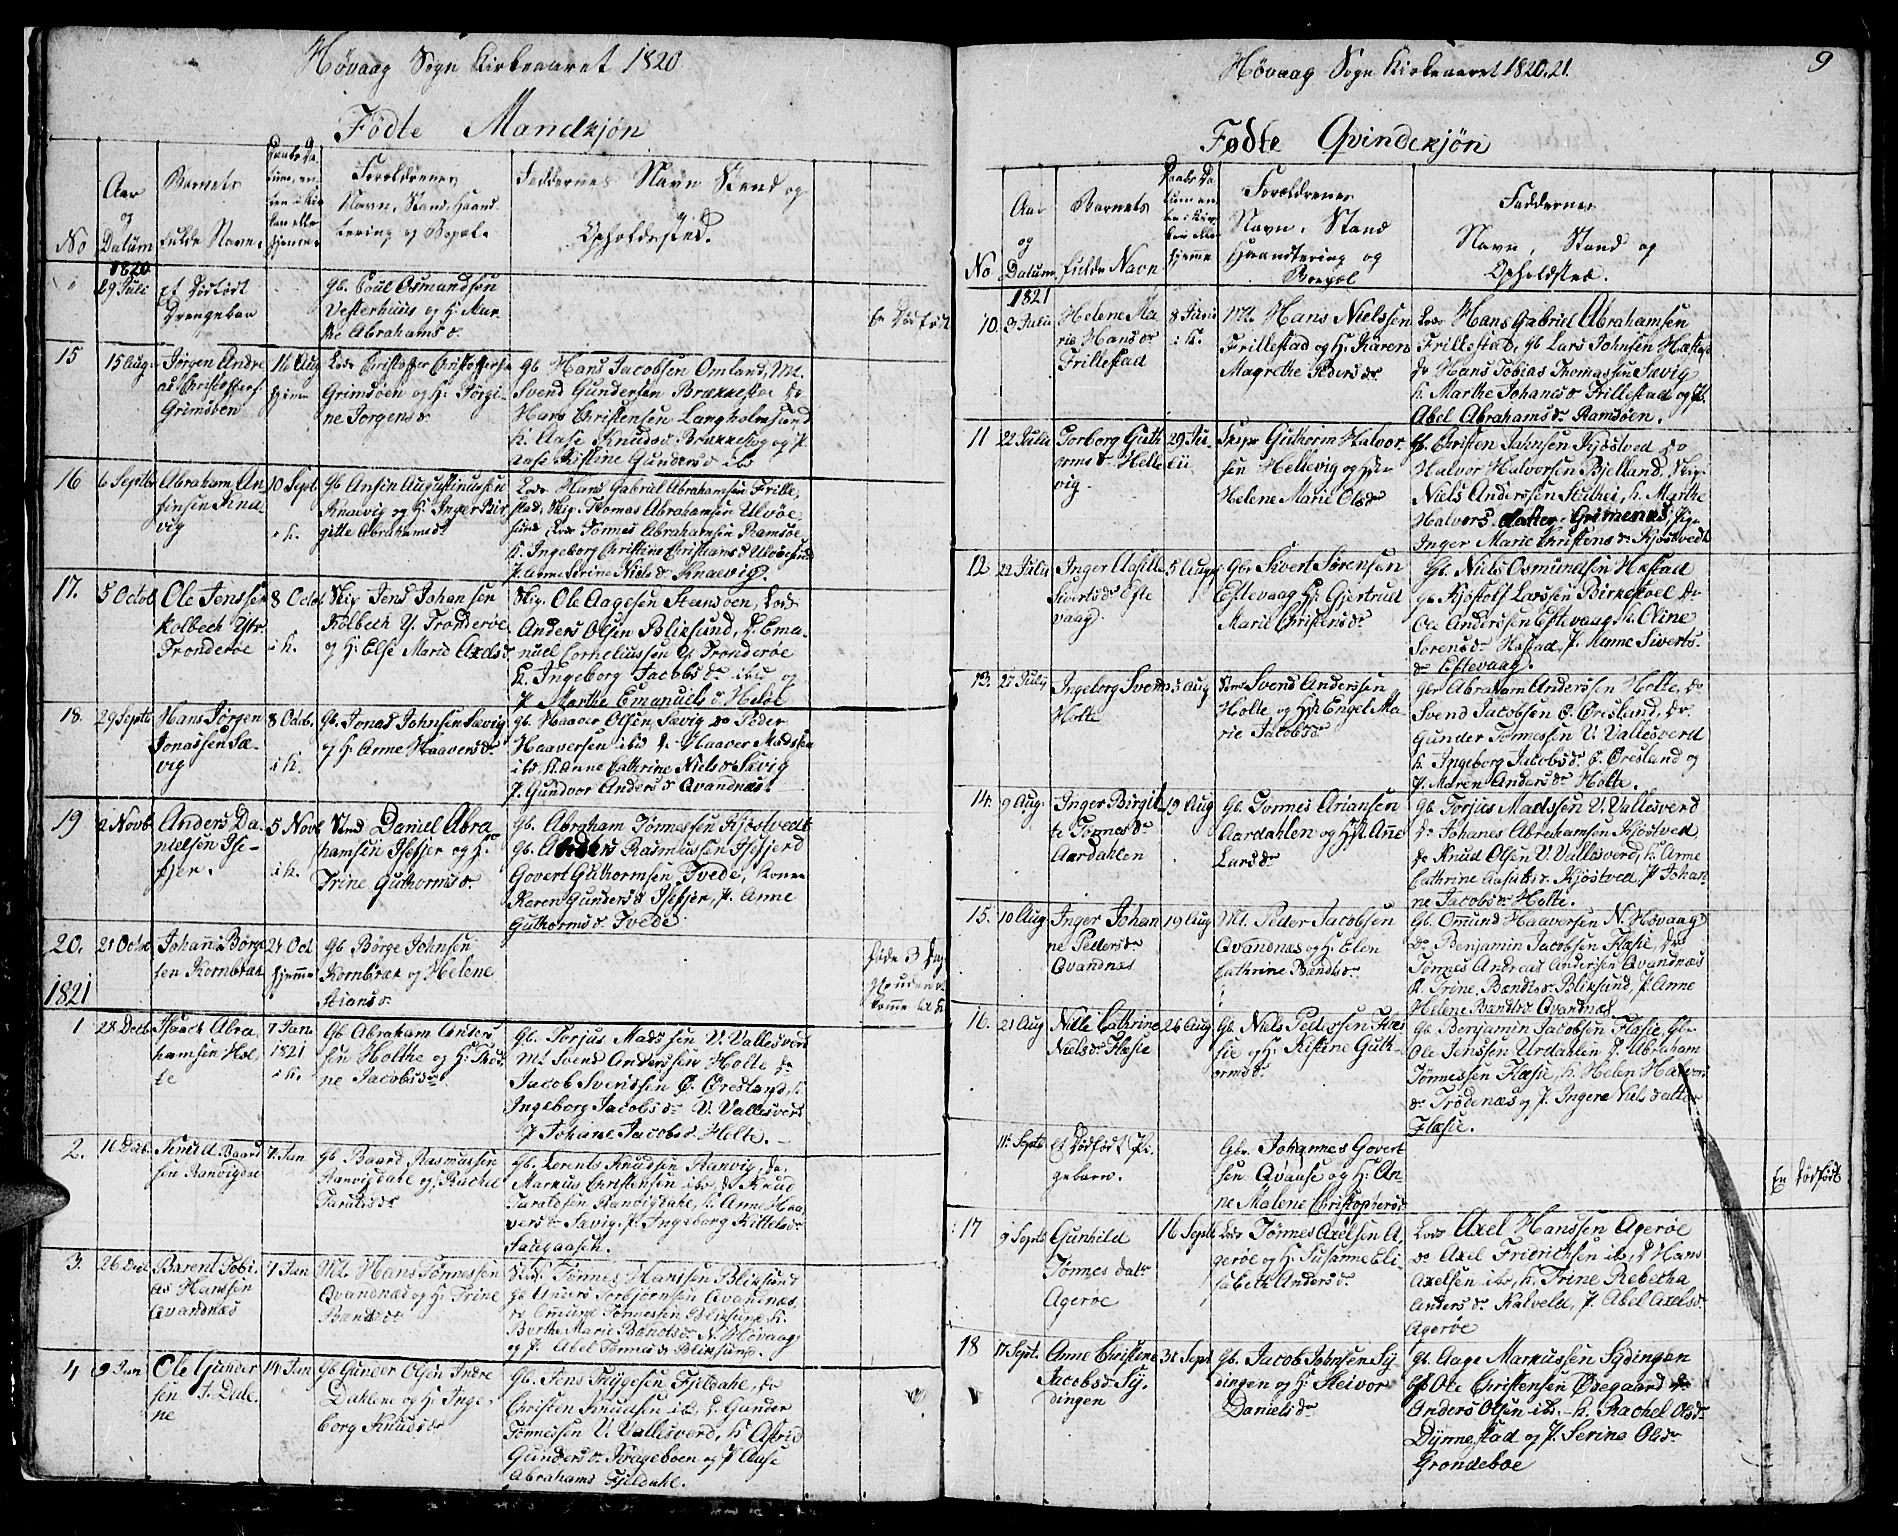 Høvaag Sogn Kirkeaaret 1820
Fødte Mandkjøn
No
Aar
og
Datum
Barnets
fulde Navn.
Daabs Da-
tum, en-
ten i Kir-
ken eller
hjemme
Foreldrenes
Navn, Stand, Haand-
tering og Bopæl.
Faddernes Navn Stand og
Opholdssted.
1820
29 Juli
et Dødfødt
Drengebarn
Gb. Poul Osmundsen
Vesterhuus og H. Mar-
the Abrahams dr
En Dødfødt
15
15 Aug.
Jørgen Andre
as Christoffers.
Grimsøen
16 Aug
hjemme
Lods Christoffer Christoffersen
Grimsøen og H. Jørgi-
ne Jørgens dr
Gb Hans Jacobsen Omland, Mt.
Svend Gundersen Brækkestø do
Hans Christensen Langholmsund
K. Aase Knuds dr Brækkestø og P.
Aase Kistine Gunders d ibd
16
6 Septb
Abraham An
finsen Knæ
vig
10 Sept
i K.
Gb Ansin Augustinussen
Knævig og H. Inger Bir
gitte Abrahams dr
Lods Hans Gabriel Abrahamsen Frille-
stad, Skip. Thomas Abrahamsen Ulvøe
sund, Lods Tønnes Abrahamsen Ramsøe
K. Ingeborg Christine Christians d Ulvøesund
P. Anne Serine Niels dr Knævig.
17.
5 Octob
Ole Jenssen
Kolbech Ytr.
Trønderøe
8 Octob
i K.
Skip. Jens Johansen
Kolbech Y. Trønderøe
og H. Else Marie Axels d
Skip. Ole Aagesen Steensøen, Lods
Anders Olsen Bliksund, P. Ema-
nuel Corneliussen Y. Trønderøe
K. Ingeborg Jacobs dr ibd og
P. Marthe Emanuels d
18.
29 Septb
Hans Jørgen
Jonassen Sæ-
vig
8 Octb.
i K.
Gb. Jonas Johnsen Sævig
og H. Anne Haavers dr
Gb. Haaver Olsen Sævig do Peder
Haaversen ibd do Haaver Madssen
ibd, K. Anne Cathrine Niels d Sævig
P. Gundvor Anders d Qvandnæs.
19
2 Novb
Anders Da-
nielsen Ise-
fjer.
5 Novb
i K.
Daniel Abra
hamsen Isefjer og H.
Trine Guthorms dr
Gb. Abraham Tørnessen Kjøstvedt
Gb. Anders Rasmussen Isefjerd
Govert Guthormsen Tvede, Kone
Karen Gunders d Isefjer, P. Anne
Guthorms d Tvede
20.
21 Octob
Johan Børge
sen Kornbræk
24 Oct
hjemme
Gb Børge Johnsen
Kornbræk og Helene
Stians dr
døde 3 Dag
1821
1
28 Decb
Isaach Abra
hamsen Hol-
te
7 Jan
1821
i K.
Gb Abraham Anders
sen Holthe og H: Trii
ne Jacobs dr
Gb. Torjus Madssen V. Vallesverd
Mt. Svend Anderssen Holte do
Jacob Svendsen Ø. Øresland, K.
Ingeborg Jacobs dr V. Vallesverd
P. Johane Jacobs d Holte. -
2.
16 Dcb
Knud Baard
sen Ranvigdal
7. Jan
Gb Baard Rasmussen
Ranvigdahl og Rachel
Taralds d
Gb. Lorents Knudsen Ranvig, do.
Markus Christensen ibd, do Knud
Taraldsen Ranvigdahl, K. Anne Haa
vers dr Sævig P. Ingeborg Kittels dr
Saugaasen.
3.
26 Decb
Barent Tobi-
as Hanssen
Qvandnæs
7 Jan
Mt. Hans Tønnessen
Qvandnæs og H: Trine
Bænds dr
Tønnes Hanssen Bliksund
Gb Anders Torbjørnsen Qvandnæs,
do Omund Tønnessen Bliksund K.
Berthe Marie Bændts dr N. Høvaag
og P. Abel Tønnes dr Bliksund.
4
9 Jan
Ole Gunder
sen I. Dale-
ne
14 Jan
Gb Gunder Olsen Indre
Dahlene og H Inge-
borg Knuds dr
Gb. Jens Tryggesen Fjeldahl, do
Christen Knudsen ibd, do Gunder
Tønnessen V. Vallesverd, K Astrid
Gunders dr Krageboen og P. Aase
Abrahams Fjeldahl.
Høvaag Sogn Kirkeaaret 1820.21.
9
Fødte Qvindekjøn
No
Aar
og
Datum
Barnets
fulde Navn
Daabs Da
tum en-
ten i Kir-
ken eller
hjemme
Forældrenes
Navn, Stand
Haandtering og
Bopæl
Faddernes
Navn, Stand og
Opholdsted.
1821
10.
3 Julii
Helene Ma
rie Hans dr
Frillestad
8 Julii
i K.
Mt. Hans Nielssen
Frillestad og H. Karen
Magrethe Peders dr
Lods Hans Gabriel Abrahamsen
Frillestad, Gb Lars Johnsen Hæstad
do Hans Tobias Thomassen Sævig
K. Marthe Johans d Frillestad og P.
Abel Abrahams dr Ramsøen.
11
22 Julii
Torborg Guth
orms dr Helle
vig.
29 Ju-
lii
Skipr Guthorm Halvor-
sen Hellevig og H.
Helene Marie Ols dr
Gb. Christen Jahnsen Kjøstved do
Halvor Halvorsen Bjelland, Skip.
Niels Anderssen Skuthei, K. Marthe
Halvors datter Grimenæs, Pig.
Inger Marie Christens dr Kjøstvedt
12
22 Julii
Inger Aasille
Siverts dr Efte
vaag
5 Aug.
Gbr Sivert Sørensen
Eftevaag H. Gjertrud
Marie Christens dr
Gb. Niels Osmundsen Hæstad
Gb Kjøstolf Larssen Birkestøel do
Ole Anderssen Eftevaag K. Oline
Sørens dr Hæstad, P. Anne Siverts-
dr Eftevaag.
13.
27 Julii
Ingeborg Svends
Holte
5 Aug
Svend Anderssen
Holte og H. Engel Ma
rie Jacobs dr
Gbr Abraham Anderssen Holte, do
Svend Jacobsen Ø. Øresland, do.
Gunder Tønnessen V. Vallesverd
K. Ingeborg Jacobs dr Ø. Øresland og
P. Maren Anders dr Holte.
14.
9 Aug.
Inger Birgit-
te Tønnes dr
Aardahlen
19 Aug
Gb Tønnes Ariansen
Aardahlen og H. Anne
Lars dr
Gb. Torjus Madssen V. Vallesverd
do Johanes Abrahamsen Kjøstved
do Knud Olsen V. Vallesverd, K. Anne
Cathrine Aasulds dr Kjøstved, P Johan-
ne Jacobs dr Holte.
15.
10 Aug.
Inger Johan
ne Peders dr
Qvandnæs
19 Aug
Mt. Peder Jacobsen
Qvandnæs og H. Elen
Cathrine Bændts dr
Gb. Omund Haaversen N. Høvaag
do Benjamin Jacobsen Flæsie, do
Tønnes Andreas Andersen Qvandnæs
K. Trine Bændts dr Bliksund, P. Anne
Helene Bændts dr Qvandnæs
16.
21 Aug
Nille Cathrine
Niels dr Flæsie
26 Aug
Gb. Niels Pederssen Flæ
sie og H. Kistine Guth-
orms dr
Gb. Benjamin Jacobsen Flæsie, Gb.
Ole Jenssen Urdahlen P. Abraham
Tønnessen Flæsie, K. Helen Halvors
dr Trødenæs og P. Ingere Niels datter
Flæsie.
11. Septb
et Dødfødt Pi-
gebarn.
Gbr. Johannes Govert
sen Qvaase og H: An-
ne Malene Christophers d
En Dødfødt
17
9 Septb
Gunhild
Tønnes datr
Agerøe
16 Septb
Lods Tønnes Axelsen A-
gerøe og H. Susanne Eli-
sabeth Anders dr
Lods Axel Hanssen Agerøe
do Axel Fridrichsen ibd, P Hans
Axelsen ibd, K. Trine Rebetha
Anders dr Kalveld, P. Abel Axels dr
Agerøe
18
17 Sept.
Anne Christine
Jacobs dr Sy-
dingen
31 Sept
Gb. Jacob Johnsen Sy-
dingen og H: Steivor
Daniels dr
Gb. Aage Markussen Sydingen
Gb Ole Christensen Ødegaard do
Anders Olsen ibd. K. Rachel Ols dr
Dynnestad og P. Serine Ols dr
Grøndeboe